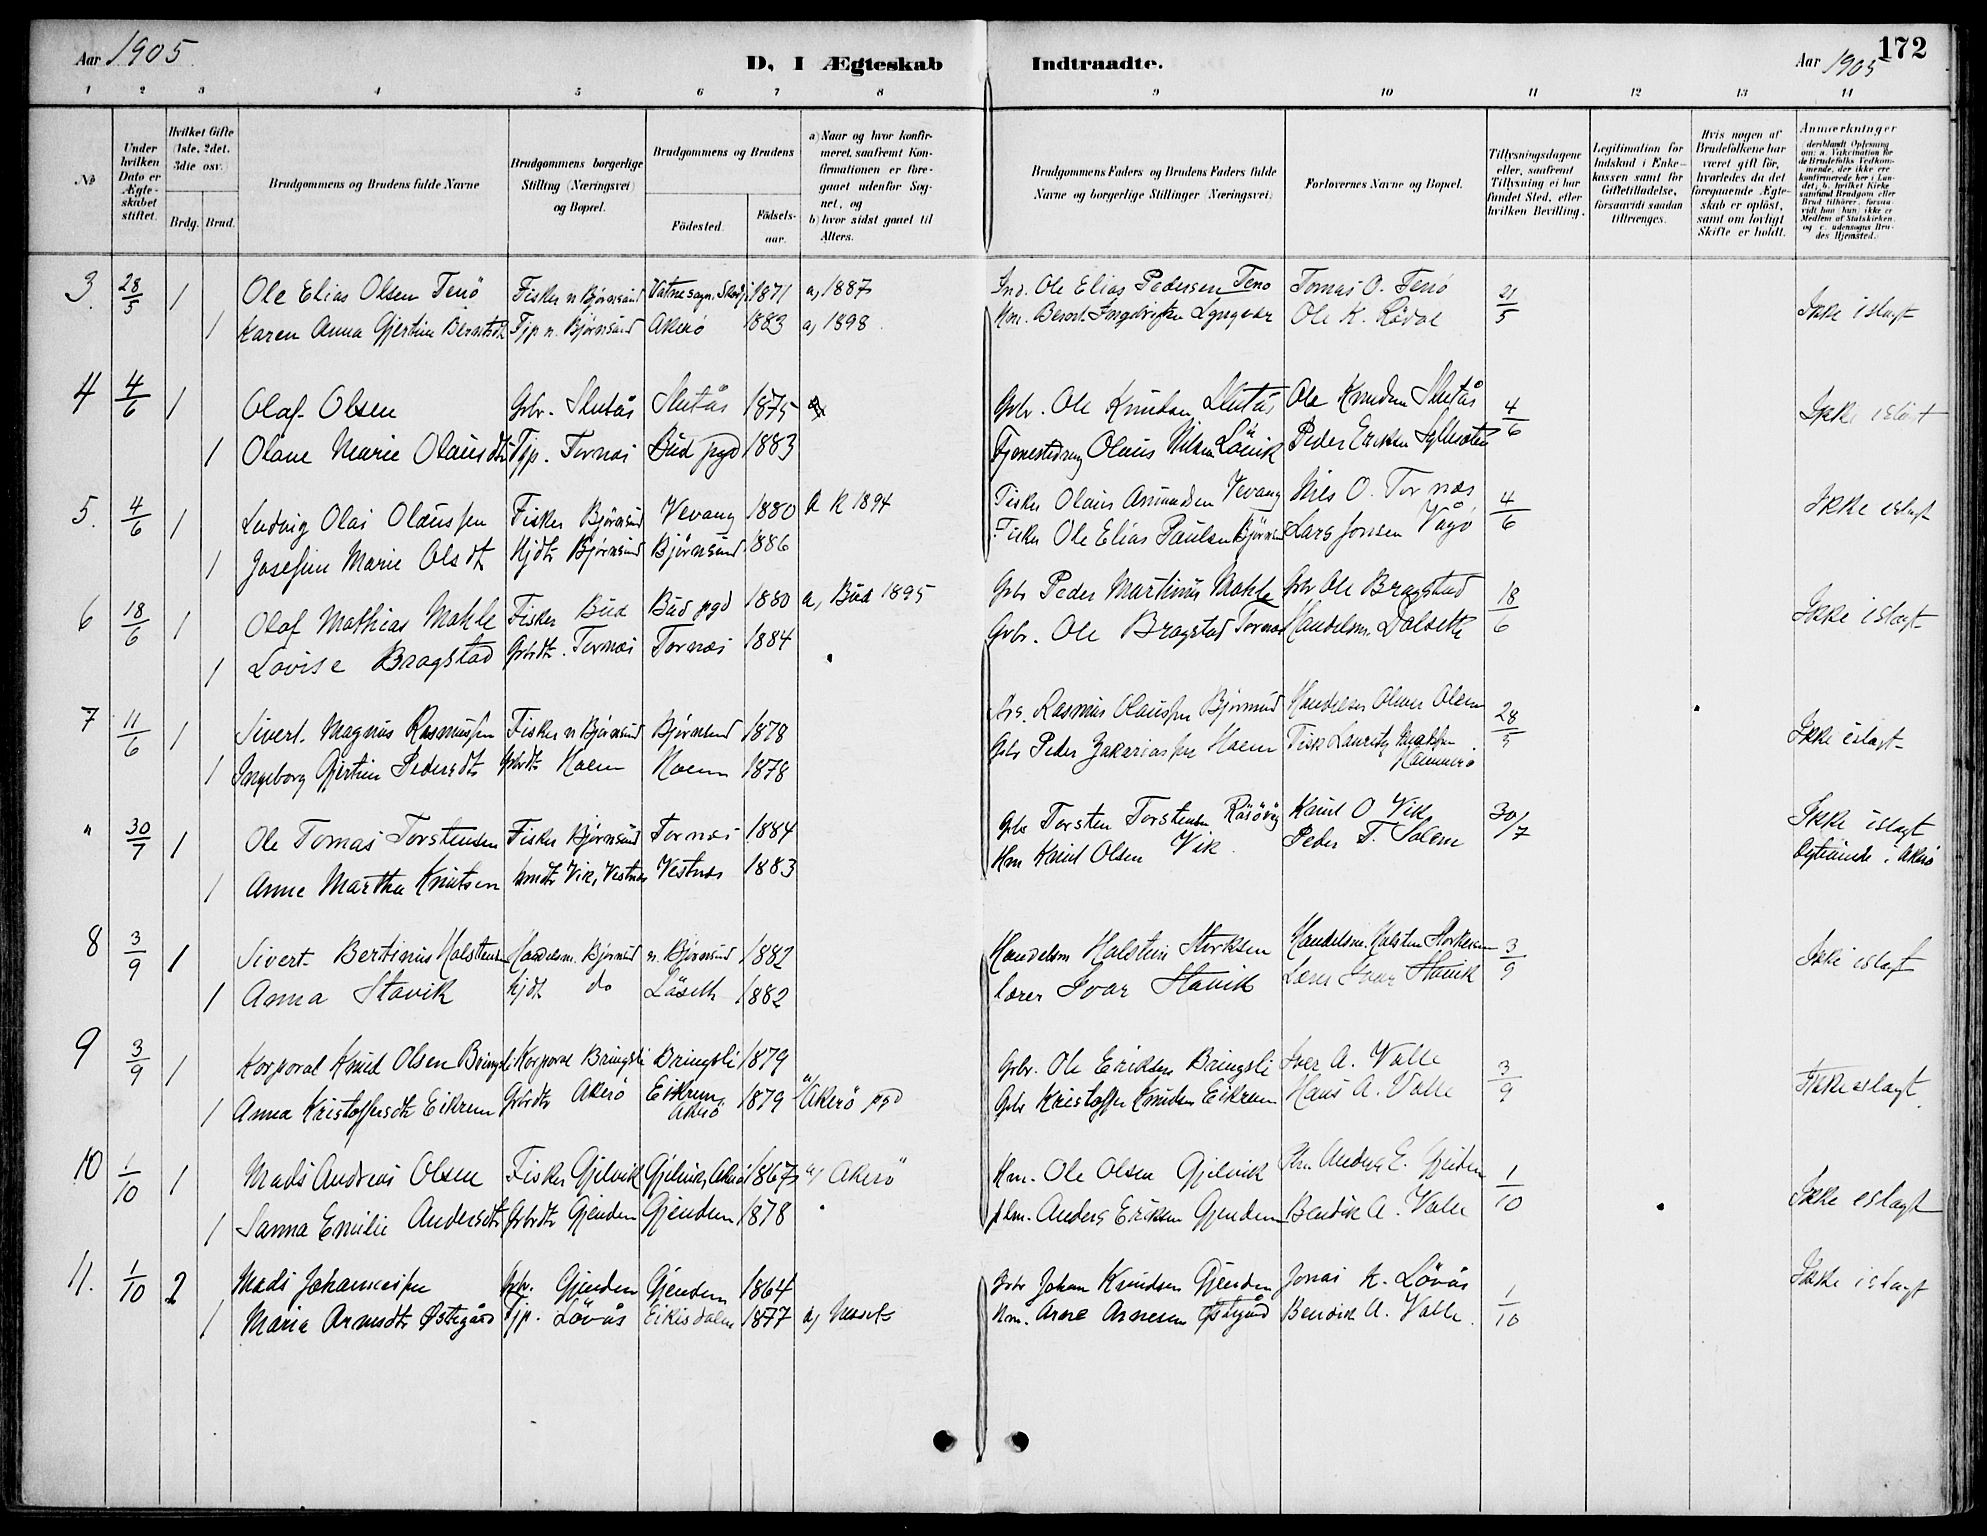 Aar 1905.
D, I Ægteskab Indtraadte.
Aar 1905
172
1 2 3 4 5 6 7 8 9 10 11 12 13 14
No
Under hvilken Dato er Ægteskabet stiftet.
Hvilket Gifte (1ste, 2det, 3die osv.)
Brdg. Brud.
Brudgommens og Brudens fulde Navne
Brudgommens borgerlige Stilling (Næringsvei) og Bopæl.
Brudgommens og Brudens
Födested.
Födselsaar.
a) Naar og hvor konfirmeret, saafremt Konfirmationen er foregaaet udenfor Sognet, og
b) hvor sidst gaaet til Alters.
Brudgommens Faders og Brudens Faders fulde Navne og borgerlige Stillinger (Næringsvei)
Forlovernes Navne og Bopæl.
Tillysningsdagene eller, saafremt Tillysning ei har fundet Sted, efter hvilken Bevilling.
Legitimation for Indskud i Enkekassen samt for Giftetilladelse, forsaavidt saadan tiltrænges.
Hvis nogen af Brudefolkene har været gift før, hvorledes da det foregaaende Ægteskab er oplöst, samt om lovligt Skifte er holdt.
Anmærkninger (deriblandt Oplysning om: a. Vakcination for de Brudefolks Vedkommende, der ikke ere konfirmerede her i Landet, b. hvilket Kirkesamfund Brudgom eller Brud tilhører, forsaavidt han (hun) ikke er Medlem af Statskirken, og c. udensogns Brudes Hjemsted.)
3. 28/5 1 Ole Elias Olsen Tenö Fisker n Bjørnsund Vatne sogn. 1871 a, 1887 Ind. Ole Elias Pedersen Tenö Tomas O. Tenö 21/5 Ikke islagt
1 Karen Anna Gjertine Berntsdt Tjp n. Bjørnsund Akerö 1883 a, 1898. Hm. Bernt Ole K. Rödal
4 4/6 1 Olaf Olsen Grbr. Slutås Slutås 1875 Grbr. Ole Knudsen Slutås Ole Knudsen Slutås 4/6 Ikke islagt
1 Olane Marie Olausdtr Tjp. Tornæs Bud pgd 1883 Olaus Nilsen Lönik Peder Eriksen
5. 4/6 1 Ludvig Olai Olaussen Fisker Björnsund Vevang 1880 a K 1894 Fisker Olaus Amundsen Vevang Nils O. Tornæs 4/6 Ikke islagt
1 Josefine Marie Olsdt Hjdtr Bjørnsund Bjørnsund 1886 Fisker Ole Elias Paulsen Bjørnsund Lars Jonsen Vågö
6 18/6 1 Olaf Mathias Mahle Fisker Bud Bud pgd 1880 a, Bud 1895 Grbr Peder Martinus Mahle Grbr Ole Bragstad 18/6 Ikke islagt
1 Lovise Bragstad Grbrdtr. Tornæs Tornæs 1884 Grbr. Ole Bragstad Tornæs Handelsm. Dalseth
7 11/6 1 Sivert Magnus Rasmussen Fisker n Bjørnsund Bjørnsund 1878 Rasmus Olaussen Bjørnsund Handelsm Oliver Olsen 28/5 Ikke islagt
1 Ingeborg Gjertine Pedersdtr Grbrdtr Hoem Hoem 1878 Grbr Peder Zakariassen Hoem Fisk Lauritz
" 30/7 1 Ole Tomas Torstensen Fisker Bjørnsund Tornæs 1884 Grbr Torsten Torstensen Knut O Vik 30/7 Ikke islagt
1 Anne Martha Knutsen Hmdtr Vik, Vestnæs Vestnæs 1883 Hm Knut Olsen Vik. Peder T. Solem i Akerö
8 3/9 1 Sivert Bertinus Halstensen Handelsm. Bjørnsund n. Bjørnsund 1882 Handelsm Halstein Storksen Handelsm. Halsten Storksen 3/9 Ikke islagt
1 Anna Stavik Hjdt do Låseth 1882 lærer Ivar Stavik Lærer Ivar Stavik
9 3/9 1 Korporal Knud Olsen Bringsli Korporal Bringsli Bringsli 1879 Grbr. Ole Eriksen Bringsli Iver A. Valle 3/9 Ikke islagt
1 Anna Kristoffersdtr Eikrem Grbrdtr Akerö Eikrem, Akerö 1879 a/ Akerö pgd Grbr Kristoffer Knudsen Eikrem Hans A. Valle
10 1/10 1 Mads Andreas Olsen Fisker Gjelvik Gjelvik, Akerö 1867 a/ Akerö Hm. Ole Olsen Gjelvik Anders E. Gjendem 1/10 Ikke islagt
1 Sanna Emilie Andersdtr Grbrdtr Gjendem Gjendem 1878 Anders Eriksen Gjendem Bendik A. Valle
11. 1/10 2 Mads Johannessen Grbr. Gjendem Gjendem 1864 Grbr Johan Knudsen Gjendem Jonas K. Lövås 1/10 Ikke islagt
1 Maria Arnesdtr Østigård Tjp. Lövås Eikisdalen 1877 a, Nesset Hm. Arne Arnesen Østigård Bendik A. Valle.